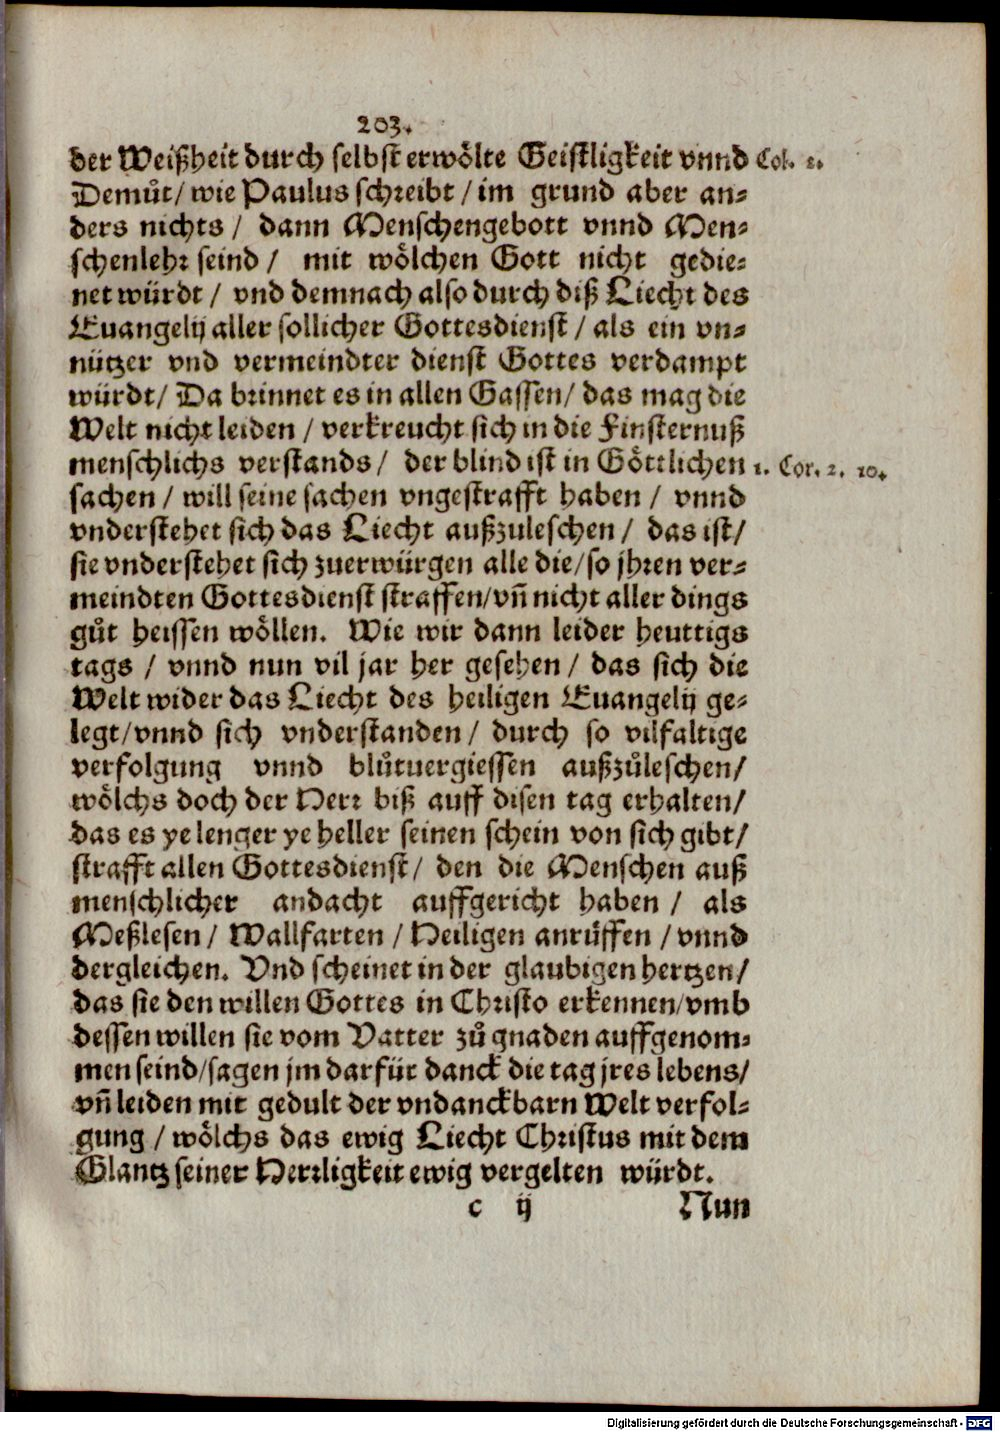 203.
der Weißheit durch selbst erwölte Geistligkeit vnnd Col. 2.
Demuͦt / wie Paulus schreibt / im grund aber an=
ders nichts / dann Menschengebott vnnd Men=
schenlehr seind / mit wölchen Gott nicht gedie=
net würdt / vnd demnach also durch diß Liecht des
Euangelij aller sollicher Gottesdienst / als ein vn=
nützer vnd vermeindter dienst Gottes verdampt
würdt / Da brinnet es in allen Gassen / das mag die
Welt nicht leiden / verkreucht sich in die Finsternuß
menschlichs verstands / der blind ist in Göttlichen 1. Cor. 2. 10.
sachen / will seine sachen vngestrafft haben / vnnd
vnderstehet sich das Liecht außzuleschen / das ist /
sie vnderstehet sich zuerwürgen alle die / so jhren ver=
meindten Gottesdienst straffen / vñ nicht aller dings
guͦt heissen wöllen. Wie wir dann leider heuttigs
tags / vnnd nun vil jar her gesehen / das sich die
Welt wider das Liecht des heiligen Euangelij ge=
legt / vnnd sich vnderstanden / durch so vilfaltige
verfolgung vnnd bluͦtuergiessen außzuͦleschen /
wölchs doch der Herr biß auff disen tag erhalten /
das es ye lenger ye heller seinen schein von sich gibt /
strafft allen Gottesdienst / den die Menschen auß
menschlicher andacht auffgericht haben / als
Meßlesen / Wallfarten / Heiligen anrüffen / vnnd
dergleichen. Vnd scheinet in der glaubigen hertzen /
das sie den willen Gottes in Christo erkennen / vmb
dessen willen sie vom Vatter zuͦ gnaden auffgenom=
men seind / sagen jm darfür danck die tag jres lebens /
vñ leiden mit gedult der vndanckbarn Welt verfol=
gung / wölchs das ewig Liecht Christus mit dem
Glantz seiner Herrligkeit ewig vergelten würdt.
c ij Nun
Digitalisierung gefördert durch die Deutsche Forschungsgemeinschaft - DFG